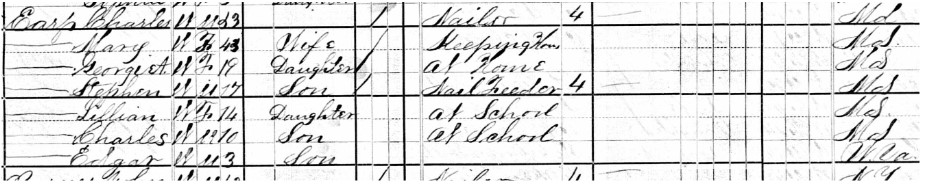 Earp Charles W M 23 1 Nailor 4 Md.
Mary W F 43 Wife 1 Keeping House Md.
George A W F 19 Daughter 1 At Home Md
Stephen W M 17 Son 1 Nail Feeder 4 Md
Lillian W F 14 Daughter At School Md
Charles W M 10 Son At School Md
Edgar W M 3 Son W Va.